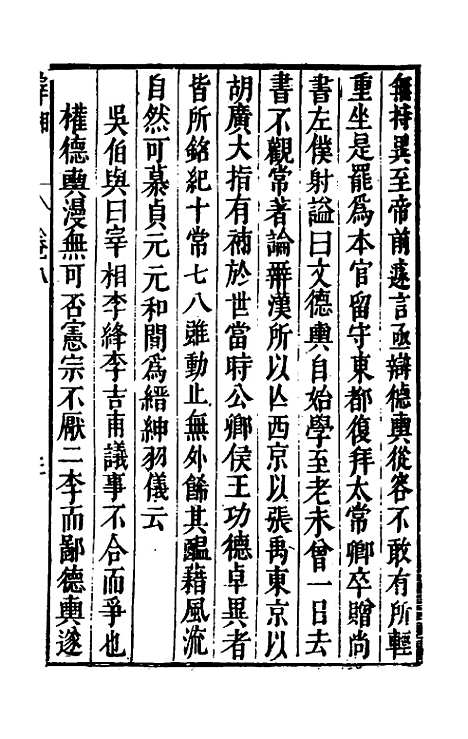 無持異至帝前遽言亟辯德輿從容不敢有所輕
重坐是罷爲本官留守東都復拜太常卿卒贈尚
書左僕射謚曰文德輿自始學至老未曾一日去
書不觀常著論辨漢所以亡西京以張禹東京以
胡廣大指有補於世當時公卿侯王功德卓異者
皆所銘紀十常七八雖動止無外餙其醞藉風流
自然可慕貞元元和間爲縉紳羽儀云
吳伯與曰宰相李絳李吉甫議事不合而爭也
權德輿漫無可否憲宗不厭二李而鄙德輿遂